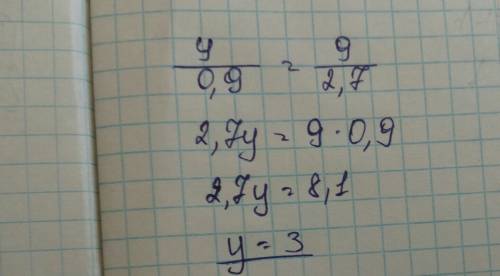 y/0,9 = 9/2,7
2,7y = 9 · 0,9
2,7y = 8,1
y = 3